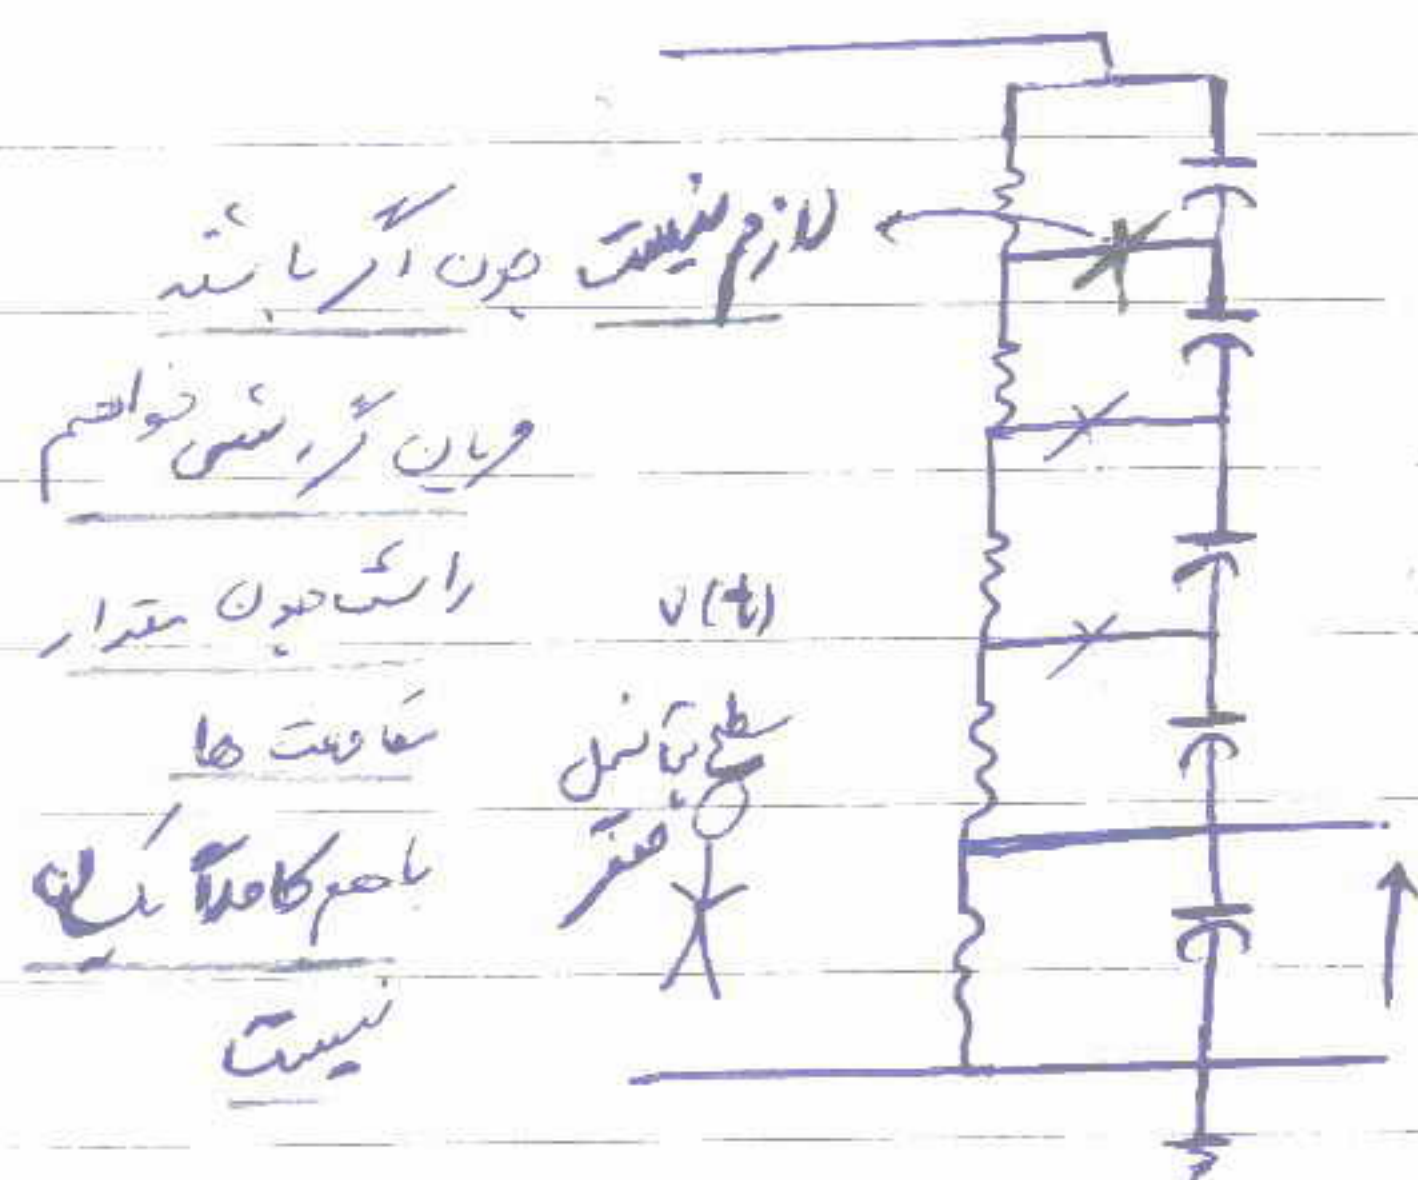 لازم نیست چون اگر باشد
جریان گردشی خواهیم
داشت چون مقدار
مقاومت ها
با هم کاملاً یکسان
نیست
v(t)
سطح پتانسیل
صفر